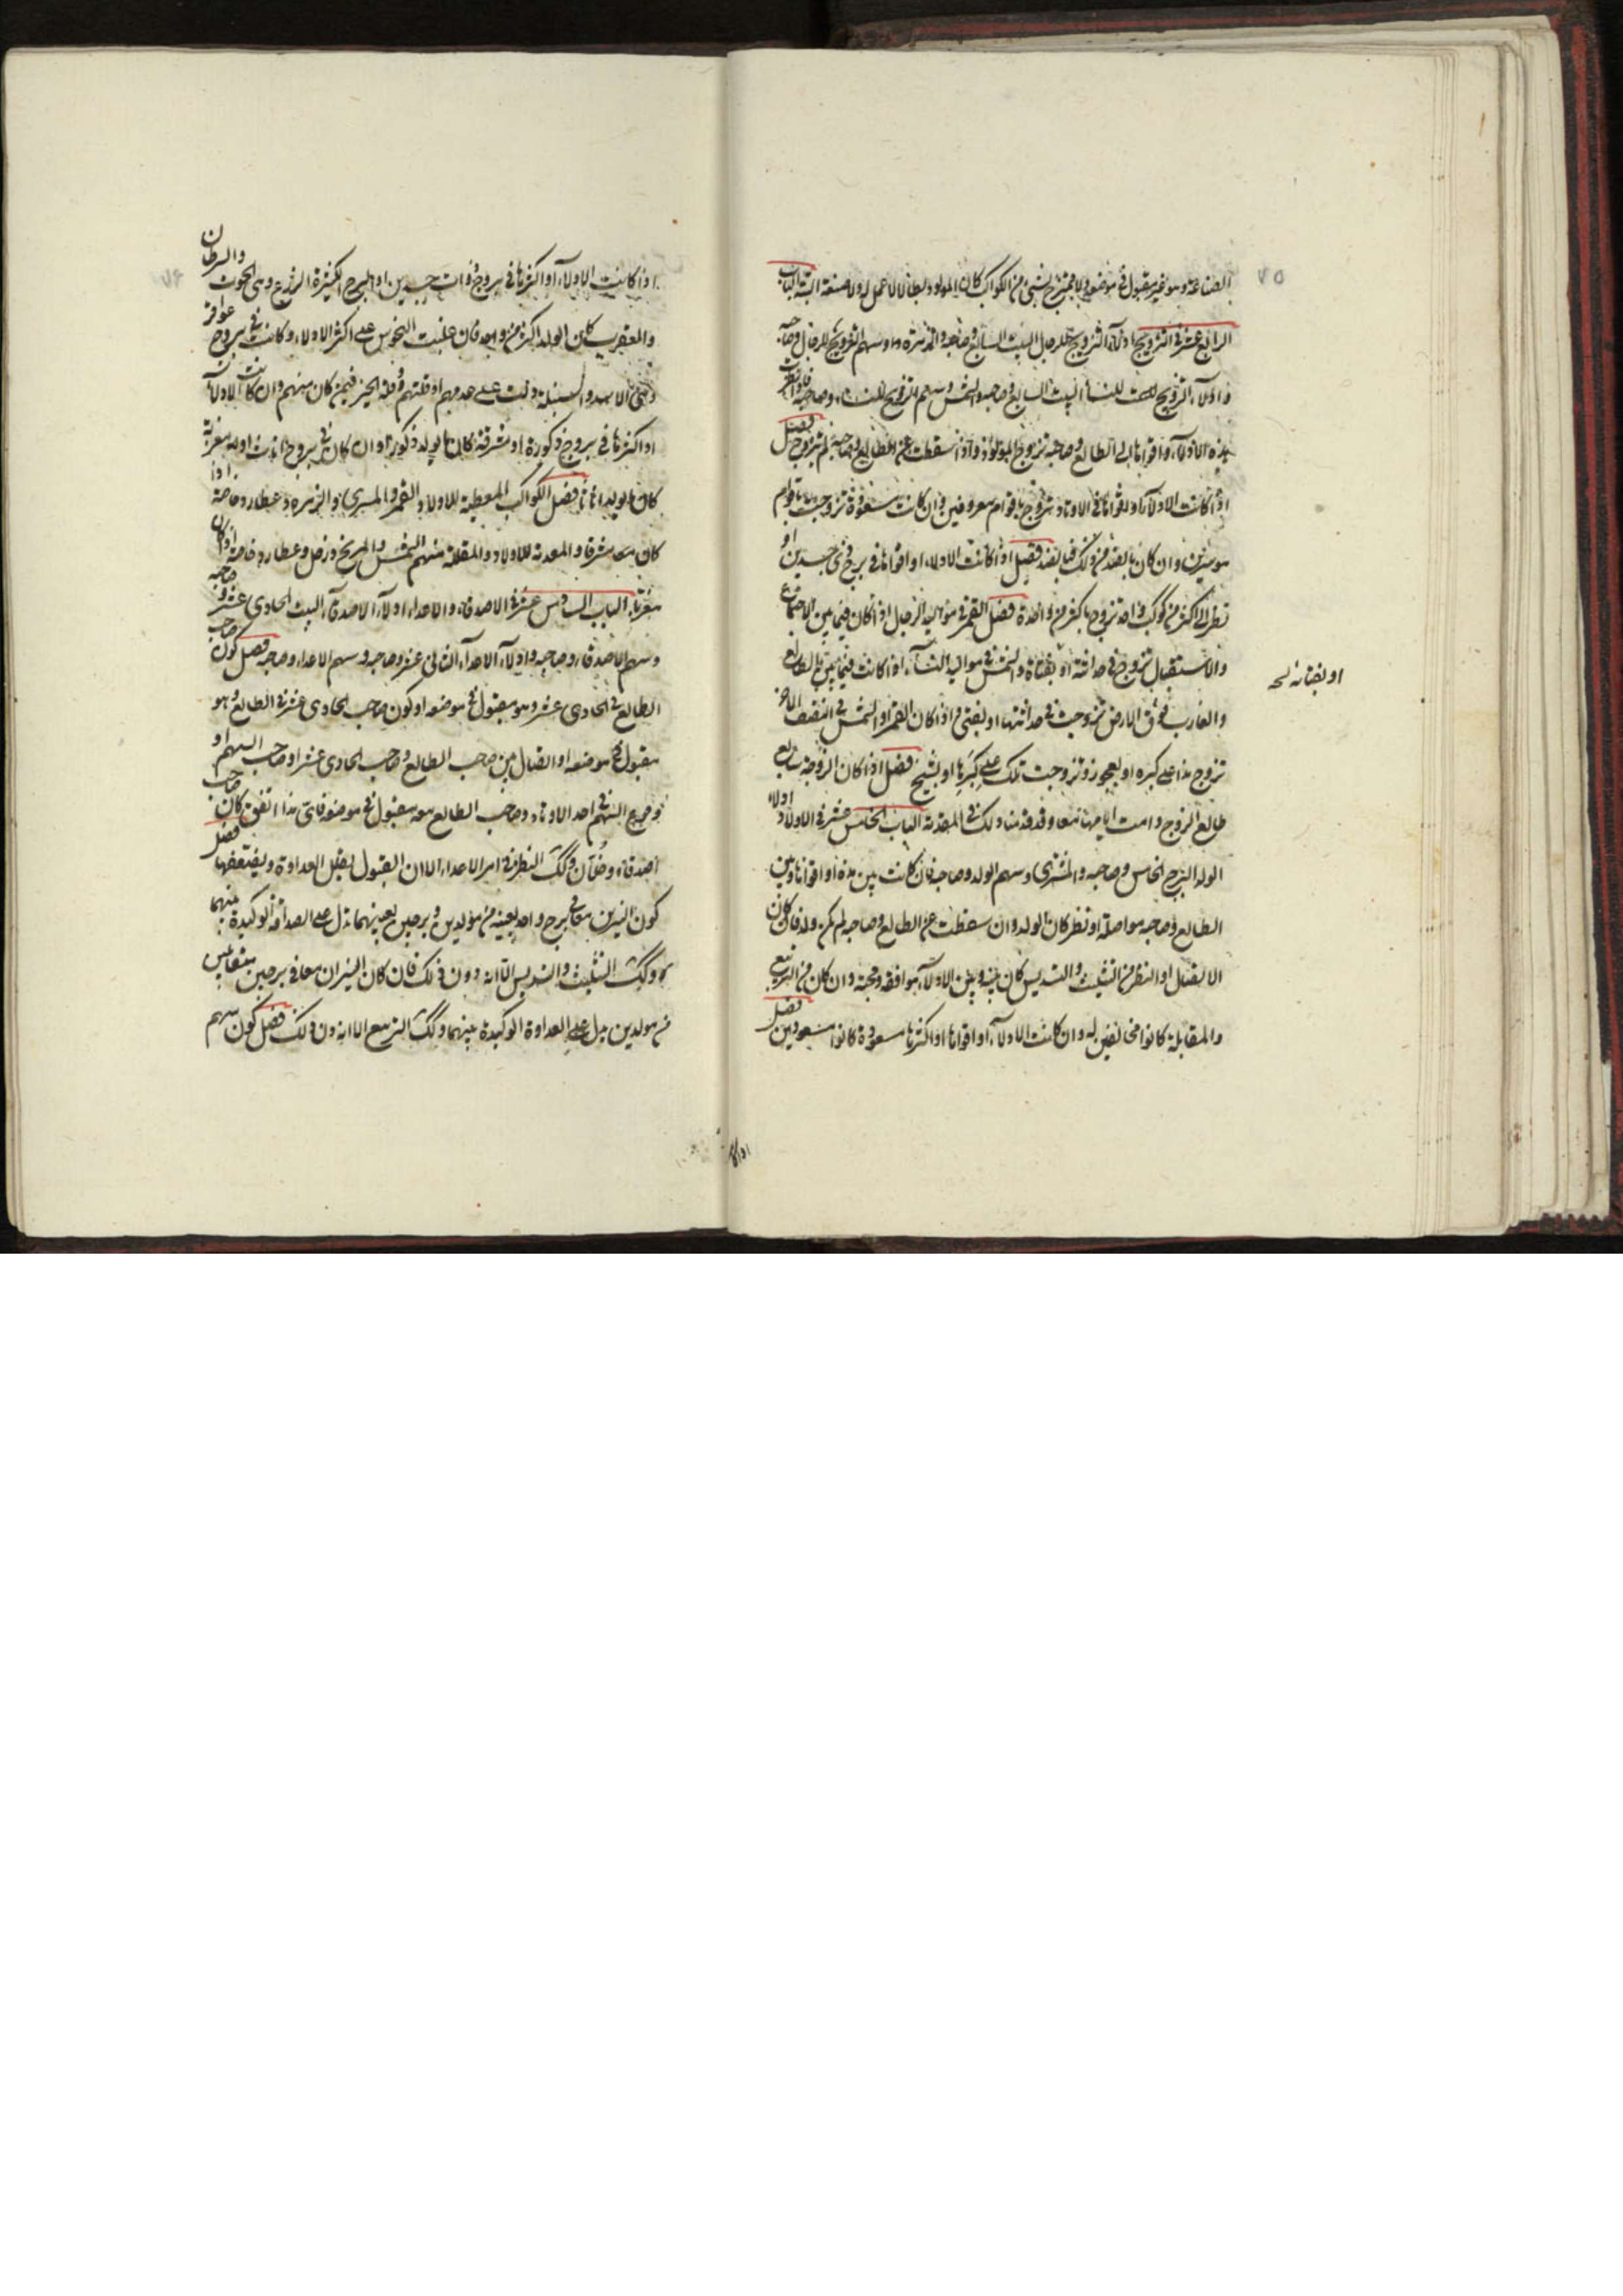 ٧٥
الصناعة وهو غير مقبول في موضعه ولا ممتزج بشيء من الكواكب كان المولود بطالا لا عمل له ولا صنعة البتة الباب
الرابع عشر في التزويج ادلاء التزويج للرجال البيت السابع وصاحبه والزهرة وسهم التزويج للرجال وصاحبه
وادلاء التزويج للنساء البيت السابع وصاحبه والشمس وسهم التزويج للنساء وصاحبه فاذا نظرت
هذه الادلاء واقواها الى الطالع وصاحبه تزوج المولود واذا سقطت عن الطالع وصاحبه لم يتزوج فصل
اذا كانت الادلاء او اقواها في الاوتاد تزوج باقوام معروفين وان كانت مسعودة تزوجت باقوام
موسرين وان كان بالضد من ذلك فبالضد فصل اذا كانت الادلاء او اقواها في برج ذي جسدين او
نظر الى اكثر من كوكب واحد تزوج باكثر من واحدة فصل القمر في مواليد الرجال اذا كان فيما بين الاجتماع
والاستقبال تزوج في حداثته او بفتاة والشمس في مواليد النساء اذا كانت فيما بين الطالع
او بفتاة نسخه
والغارب فوق الارض تزوجت في حداثتها او بفتى واذا كان القمر او الشمس في النصف الاخر
تزوج هذا على كبره او بعجوز وتزوجت تلك على كبرها او بشيخ فصل اذا كان الزوجة سابع
طالع الزوج دامت ايامهما معا وقد قدمنا ذلك في المقدمة الباب الخامس عشر في الاولاد ادلاء
الولد البرج الخامس وصاحبه والمشتري وسهم الولد وصاحبه فان كانت بين هذه او اقواها وبين
الطالع وصاحبه مواصلة او نظر كان الولد وان سقطت عن الطالع وصاحبه لم يكن ولد فان كان
الاتصال او النظر من التثليث والتسديس كان بينه وبين الاولاد موافقة ومحبة وان كان من التربيع
والمقابلة كانوا مخالفين له وان كانت الادلاء او اقواها او اكثرها مسعودة كانوا مسعودين فصل
اذا كانت الادلاء او اكثرها في بروج ذوات جسدين او البروج الكثيرة الزرع وهي الحوت والسرطان
والعقرب كان الولد اكثر من واحد فان غلبت النحوس على اكثر الادلاء وكانت في بروج عواقر
وهي الاسد والسنبلة دلت على عدمهم او قلتهم وقلة الخير فيمن كان منهم وان كانت الادلاء
او اكثرها في بروج ذكورة او مشرقة كان ما يولد ذكورا وان كان في بروج اناث او مغربة
كان ما يولد اناثا فصل الكواكب المعطية للاولاد القمر والمشتري والزهرة وعطارد خاصة اذا
كان مشرقا والمعدمة للاولاد والمقللة منهم الشمس والمريخ وزحل وعطارد خاصة اذا كان
مغربا الباب السادس عشر في الاصدقاء والاعداء ادلاء الاصدقاء البيت الحادي عشر وصاحبه
وسهم الاصدقاء وصاحبه وادلاء الاعداء الثاني عشر وصاحبه وسهم الاعداء وصاحبه فصل كون صاحب
الطالع في الحادي عشر وهو مقبول في موضعه او كون صاحب الحادي عشر في الطالع وهو
مقبول في موضعه او اتصال بين صاحب الطالع وصاحب الحادي عشر او صاحب السهم او
وقوع السهم في احد الاوتاد وصاحب الطالع معه مقبول في موضعه فاي هذا اتفق كان صاحب
اصدقاء واخوان وكذلك النظر في امر الاعداء الا ان القبول يقلل العداوة ويضعفها فصل
كون النيرين معا في برج واحد بعينه من مولدين وبرجين بعينهما دل على الصداقة الوكيدة بينهما
وكذلك التثليث والتسديس الا انه دون ذلك فان كان النيران معا في برجين متقابلين
من مولدين دل على العداوة الوكيدة بينهما وكذلك التربيع الا انه دون ذلك فصل كون سهم